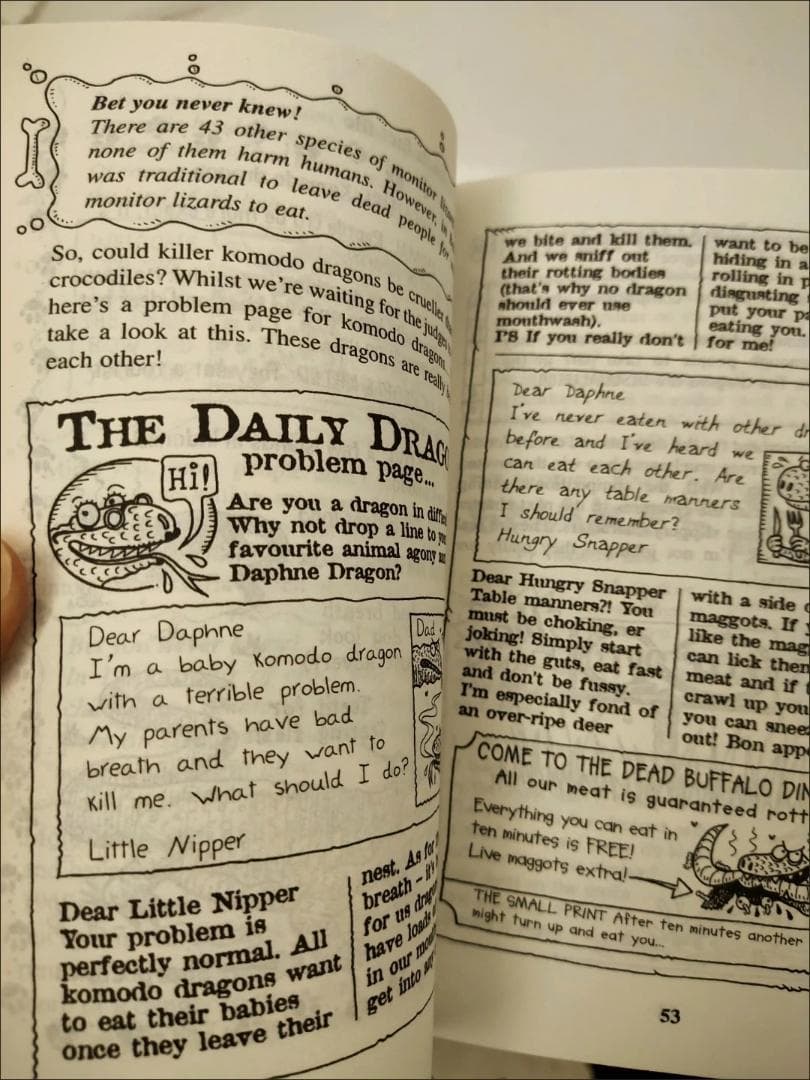 Bet you never knew!
There are 43 other species of monitor
none of them harm humans. However, in
was traditional to leave dead people for
monitor lizards to eat.
So, could killer komodo dragons be crueller
crocodiles? Whilst we're waiting for the judges
here's a problem page for komodo dragons
take a look at this. These dragons are really
each other!
THE DAILY
problem page...
Hi!
Are you a dragon in
Why not drop a line to
favourite animal agony
Daphne Dragon?
Dear Daphne
I'm a baby Komodo dragon
with a terrible problem.
My parents have bad
breath and they want to
kill me. What should I do?
Little Nipper
Dad
Dear Little Nipper
Your problem is
perfectly normal. All
komodo dragons want
to eat their babies
once they leave their
nest. As for
breath –
for us
have loads
in our
get into
we bite and kill them.
And we sniff out
their rotting bodies
(that's why no dragon
should ever use
mouthwash).
PS If you really don't
want to be
hiding in a
rolling in
disgusting
put your
eating you.
for me!
Dear Daphne
I've never eaten with other
before and I've heard we
can eat each other. Are
there any table manners
I should remember?
Hungry Snapper
Dear Hungry Snapper
Table manners?! You
must be choking, er
joking! Simply start
with the guts, eat fast
and don't be fussy.
I'm especially fond of
an over-ripe deer
with a side
maggots. If
like the
can lick
meat and if
crawl up
you can
out! Bon
COME TO THE DEAD BUFFALO
All our meat is guaranteed
Everything you can eat in
ten minutes is FREE!
Live maggots extra!
THE SMALL PRINT After ten minutes another
might turn up and eat you...
53